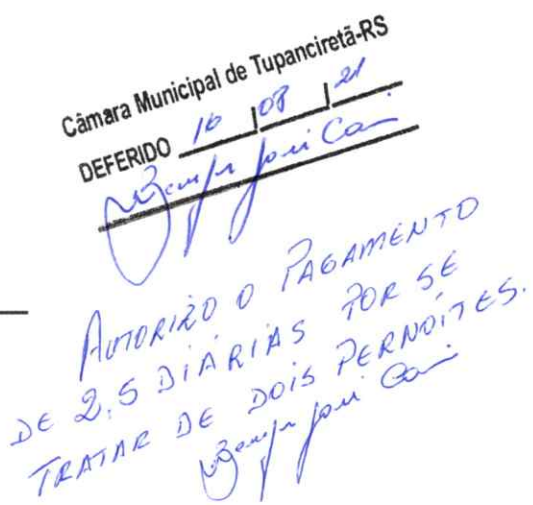 Câmara Municipal de Tupanciretã-RS
DEFERIDO 16 / 08 / 21
AUTORIZO O PAGAMENTO
DE 2,5 DIÁRIAS POR SE
TRATAR DE DOIS PERNOITES.